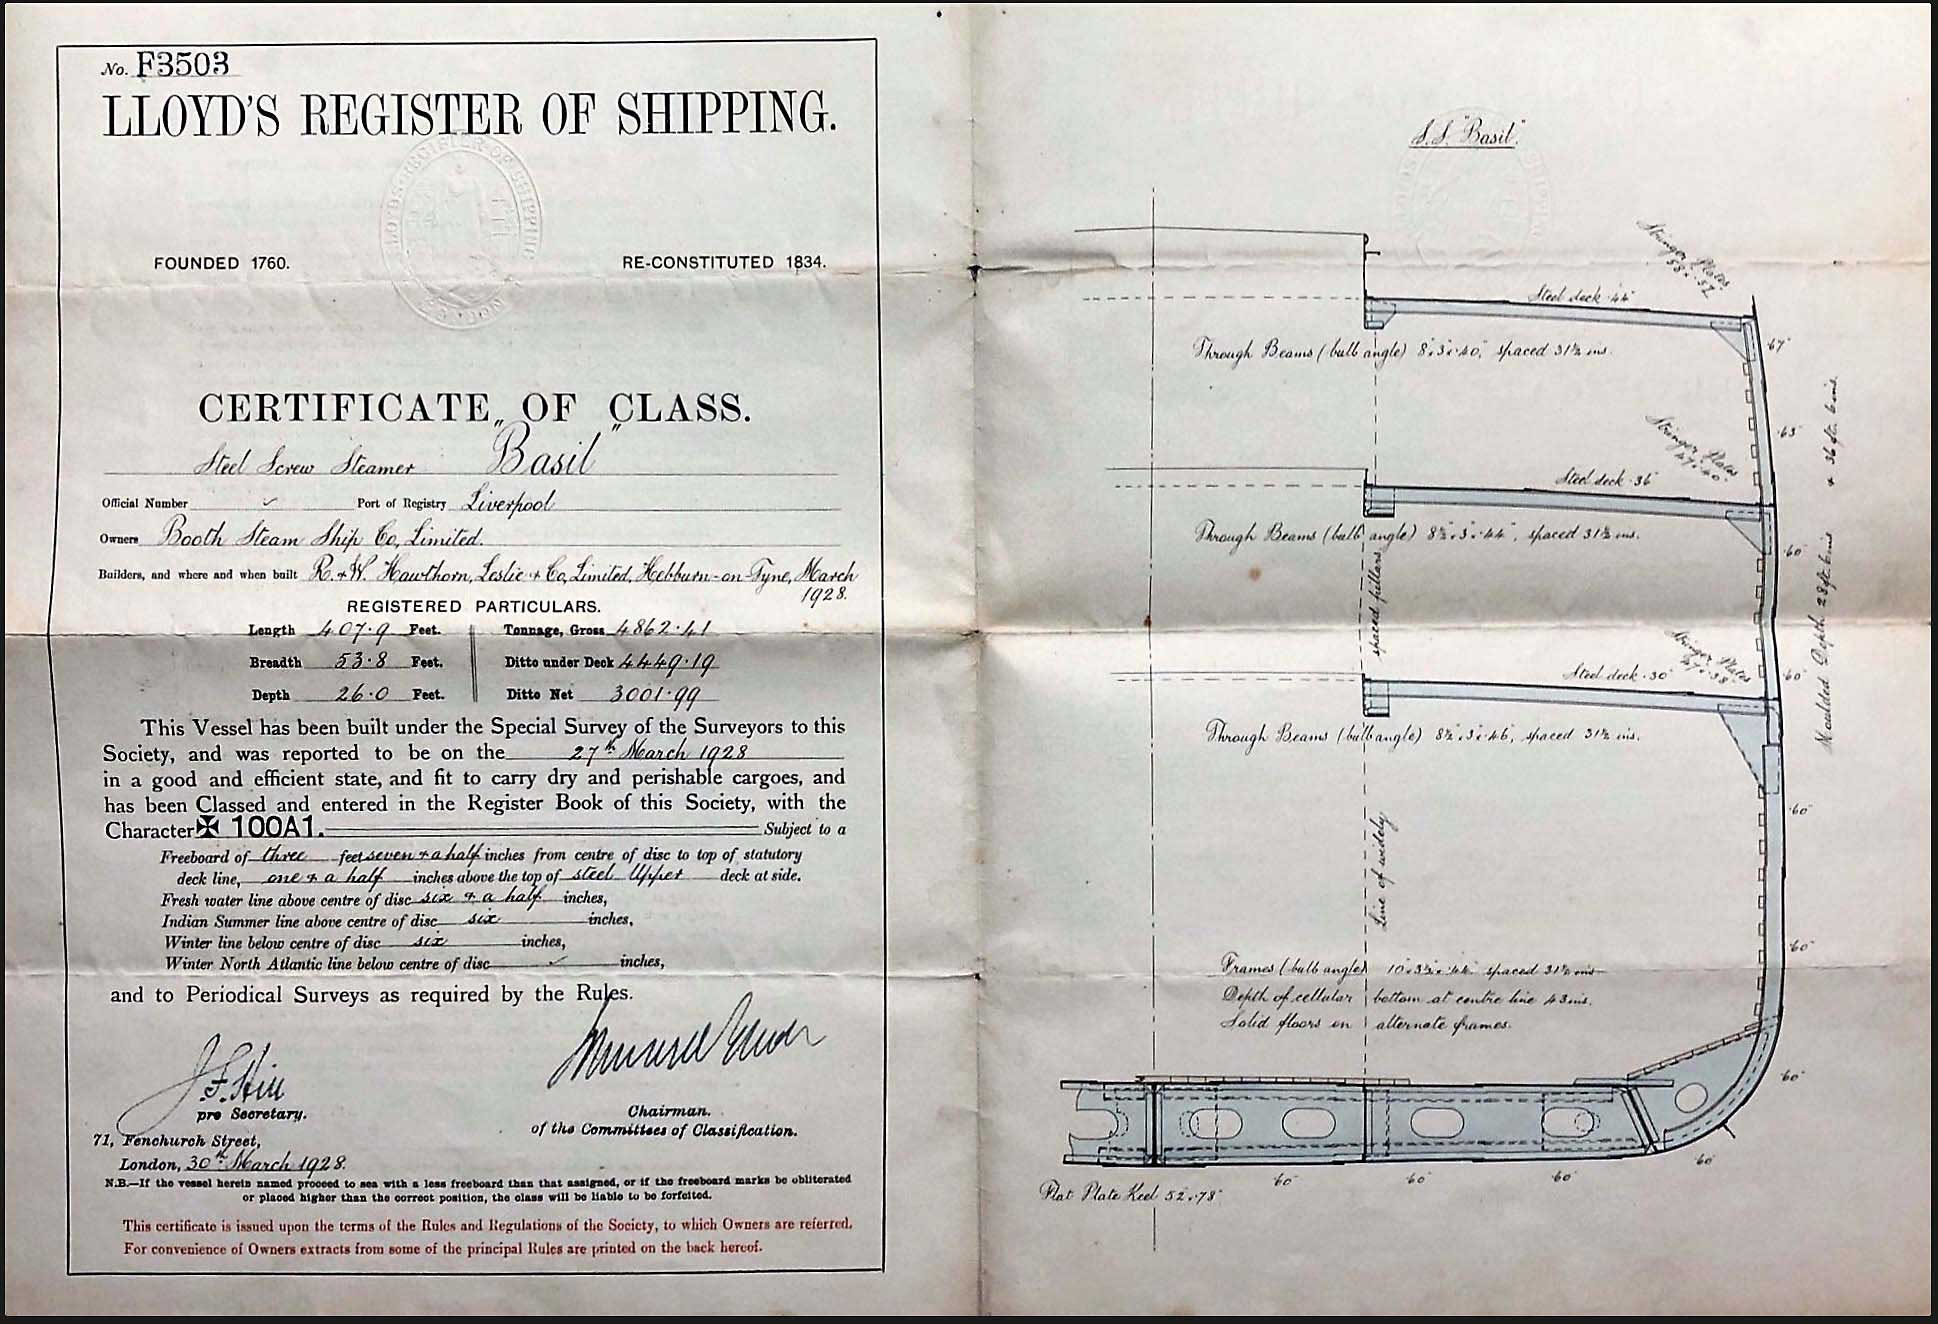 No. F3503
LLOYD'S REGISTER OF SHIPPING.
LLOYD'S REGISTER OF SHIPPING
FOUNDED 1760. RE-CONSTITUTED 1834.
CERTIFICATE OF CLASS.
Steel Screw Steamer "Basil"
Official Number ✓ Port of Registry Liverpool
Owners Booth Steam Ship Co, Limited.
Builders, and where and when built R. & W. Hawthorn, Leslie & Co, Limited, Hebburn-on-Tyne, March
1928.
REGISTERED PARTICULARS.
Length 407.9 Feet. Tonnage, Gross 4862.41
Breadth 53.8 Feet. Ditto under Deck 4449.19
Depth 26.0 Feet. Ditto Net 3001.99
This Vessel has been built under the Special Survey of the Surveyors to this
Society, and was reported to be on the 27th March 1928
in a good and efficient state, and fit to carry dry and perishable cargoes, and
has been Classed and entered in the Register Book of this Society, with the
Character ✠ 100A1. Subject to a
Freeboard of three feet seven & a half inches from centre of disc to top of statutory
deck line, one & a half inches above the top of steel Upper deck at side.
Fresh water line above centre of disc six & a half inches,
Indian Summer line above centre of disc six inches,
Winter line below centre of disc six inches,
Winter North Atlantic line below centre of disc ✓ inches,
and to Periodical Surveys as required by the Rules.
J. F. Hill
pro Secretary.
Chairman.
of the Committees of Classification.
71, Fenchurch Street,
London, 30th March 1928.
N.B.—If the vessel herein named proceed to sea with a less freeboard than that assigned, or if the freeboard marks be obliterated
or placed higher than the correct position, the class will be liable to be forfeited.
This certificate is issued upon the terms of the Rules and Regulations of the Society, to which Owners are referred.
For convenience of Owners extracts from some of the principal Rules are printed on the back hereof.
S.S. "Basil".
Stringer Plates
58 × .52
Steel deck .44"
Through Beams (bulb angle) 8" × 3" × .40", spaced 31½ ins.
.67"
.63"
Stringer Plates
47 × .40"
Steel deck .36"
Through Beams (bulb angle) 8½" × 3" × .44", spaced 31½ ins.
.60"
Stringer Plates
47 × .38"
Steel deck .30"
.60"
Through Beams (bulb angle) 8½" × 3" × .46", spaced 31½ ins.
Moulded Depth 28 ft. 6 ins & 36 ft. 6 ins.
Line of widely spaced pillars
.60"
.60"
Frames (bulb angle) 10" × 3½" × .44" spaced 31½ ins
Depth of cellular bottom at centre line 43 ins.
Solid floors on alternate frames.
.60"
.60"
.60" .60" .60"
Flat Plate Keel 52 × .78"